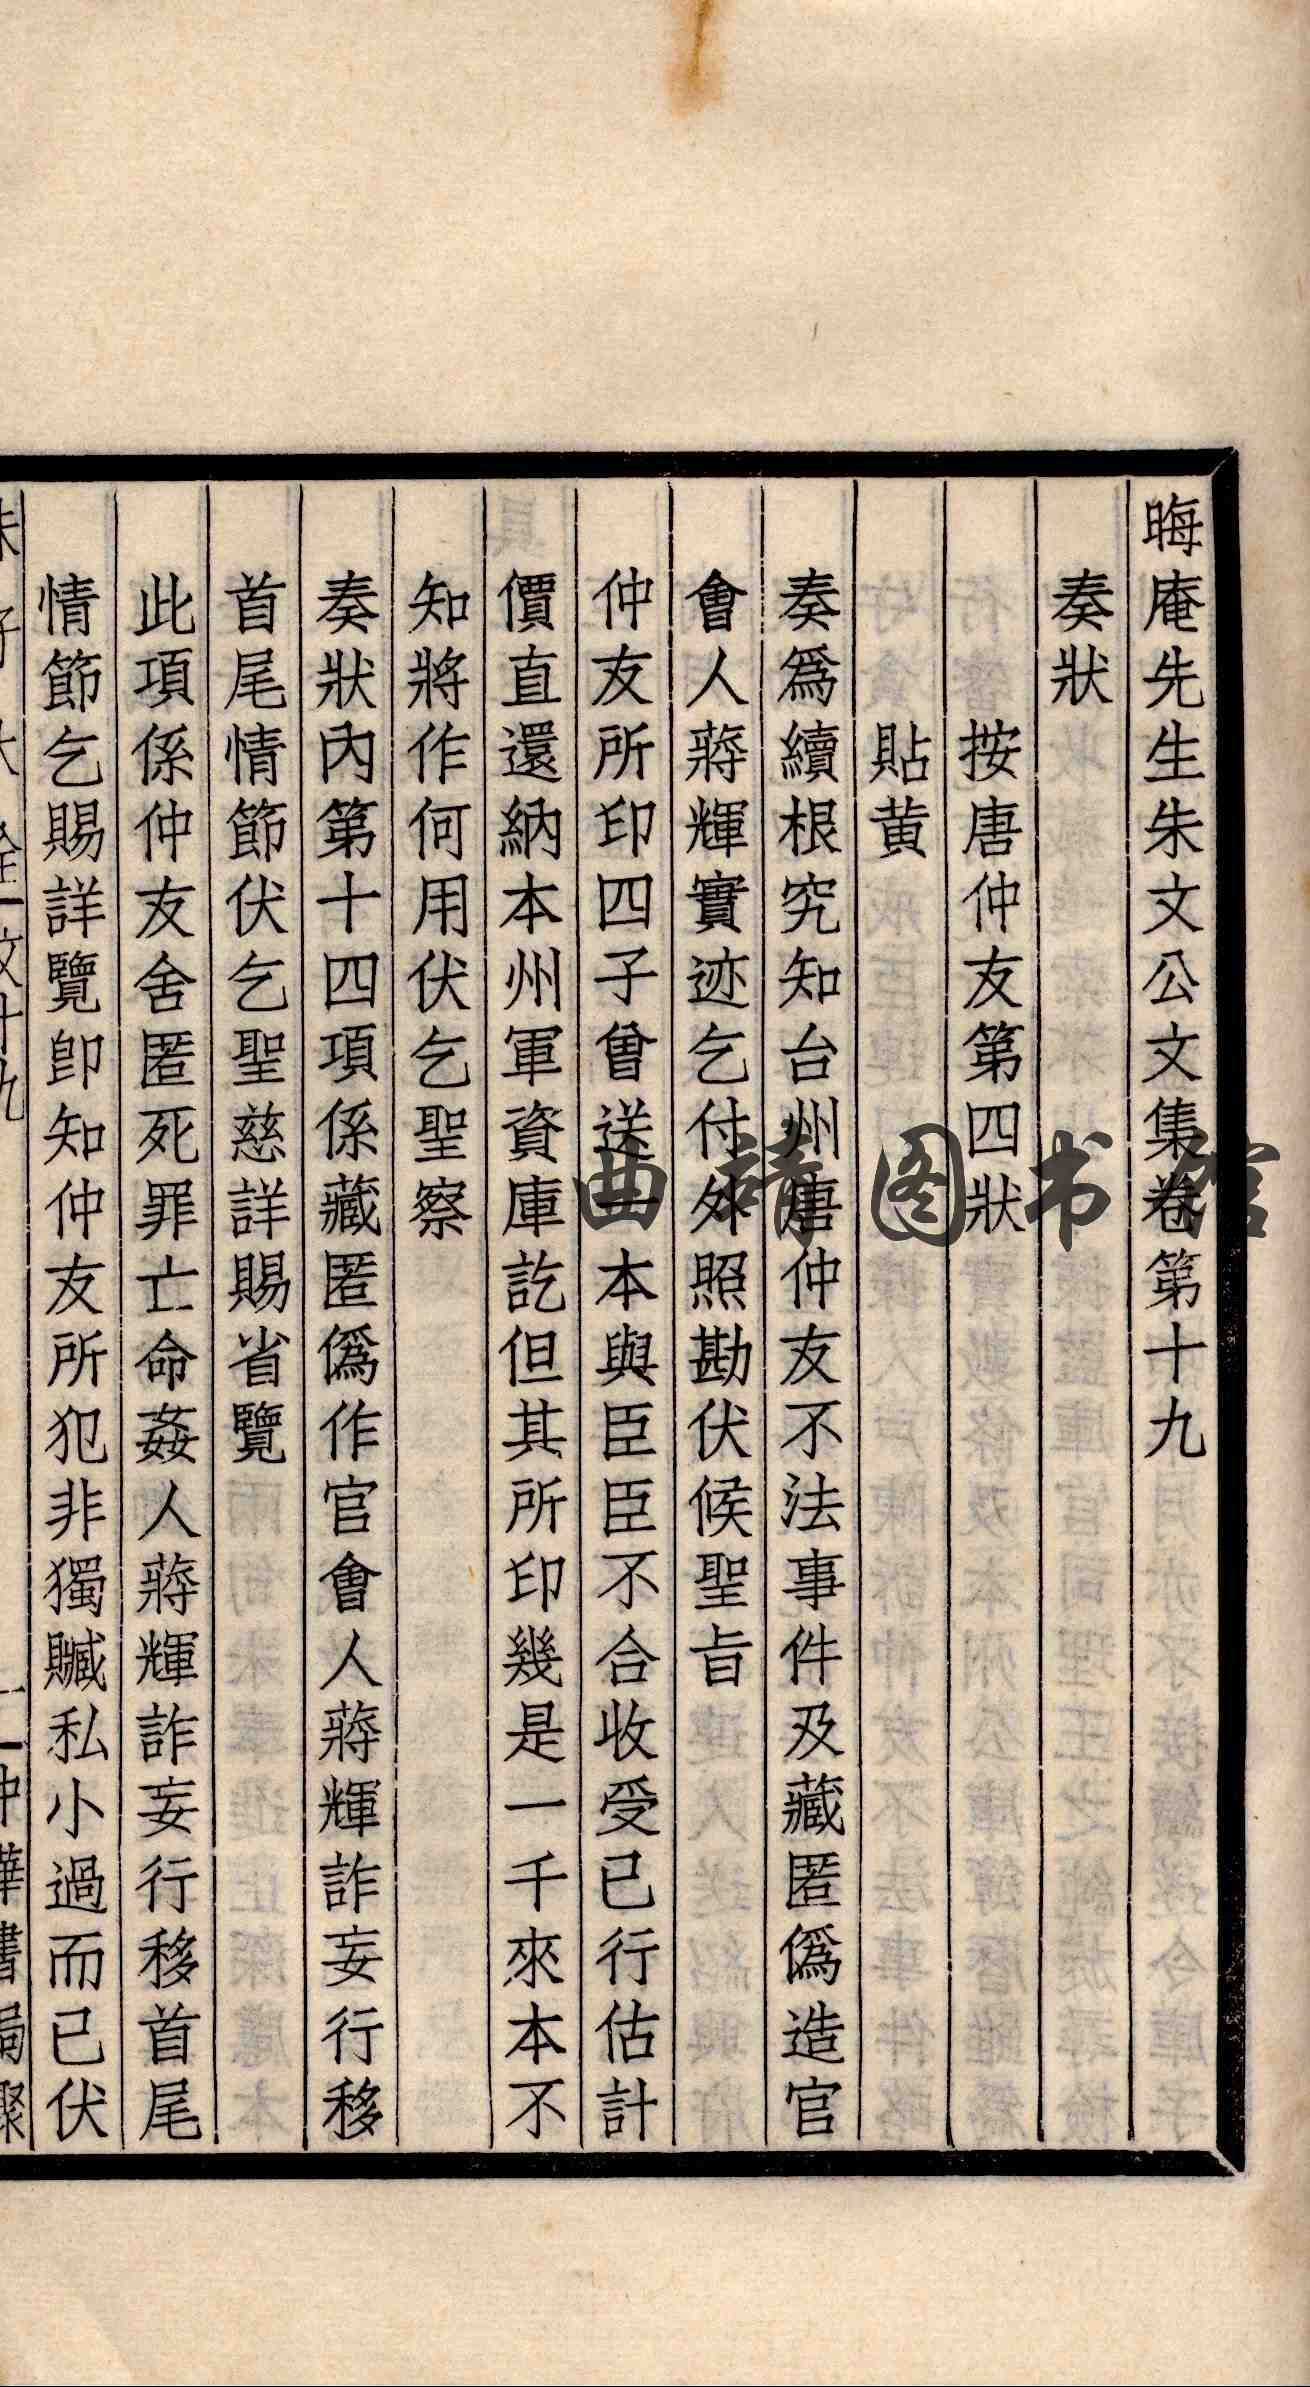 晦庵先生朱文公文集卷第十九
奏狀
按唐仲友第四狀
貼黃
奏爲續根究知台州唐仲友不法事件及藏匿僞造官
會人蔣輝實迹乞付外照勘伏候聖旨
仲友所印四子曾送一本與臣臣不合收受已行估計
價直還納本州軍資庫訖但其所印幾是一千來本不
知將作何用伏乞聖察
奏狀內第十四項係藏匿僞作官會人蔣輝詐妄行移
首尾情節伏乞聖慈詳賜省覽
此項係仲友舍匿死罪亡命姦人蔣輝詐妄行移首尾
情節乞賜詳覽卽知仲友所犯非獨贓私小過而已伏
曲靖图书馆